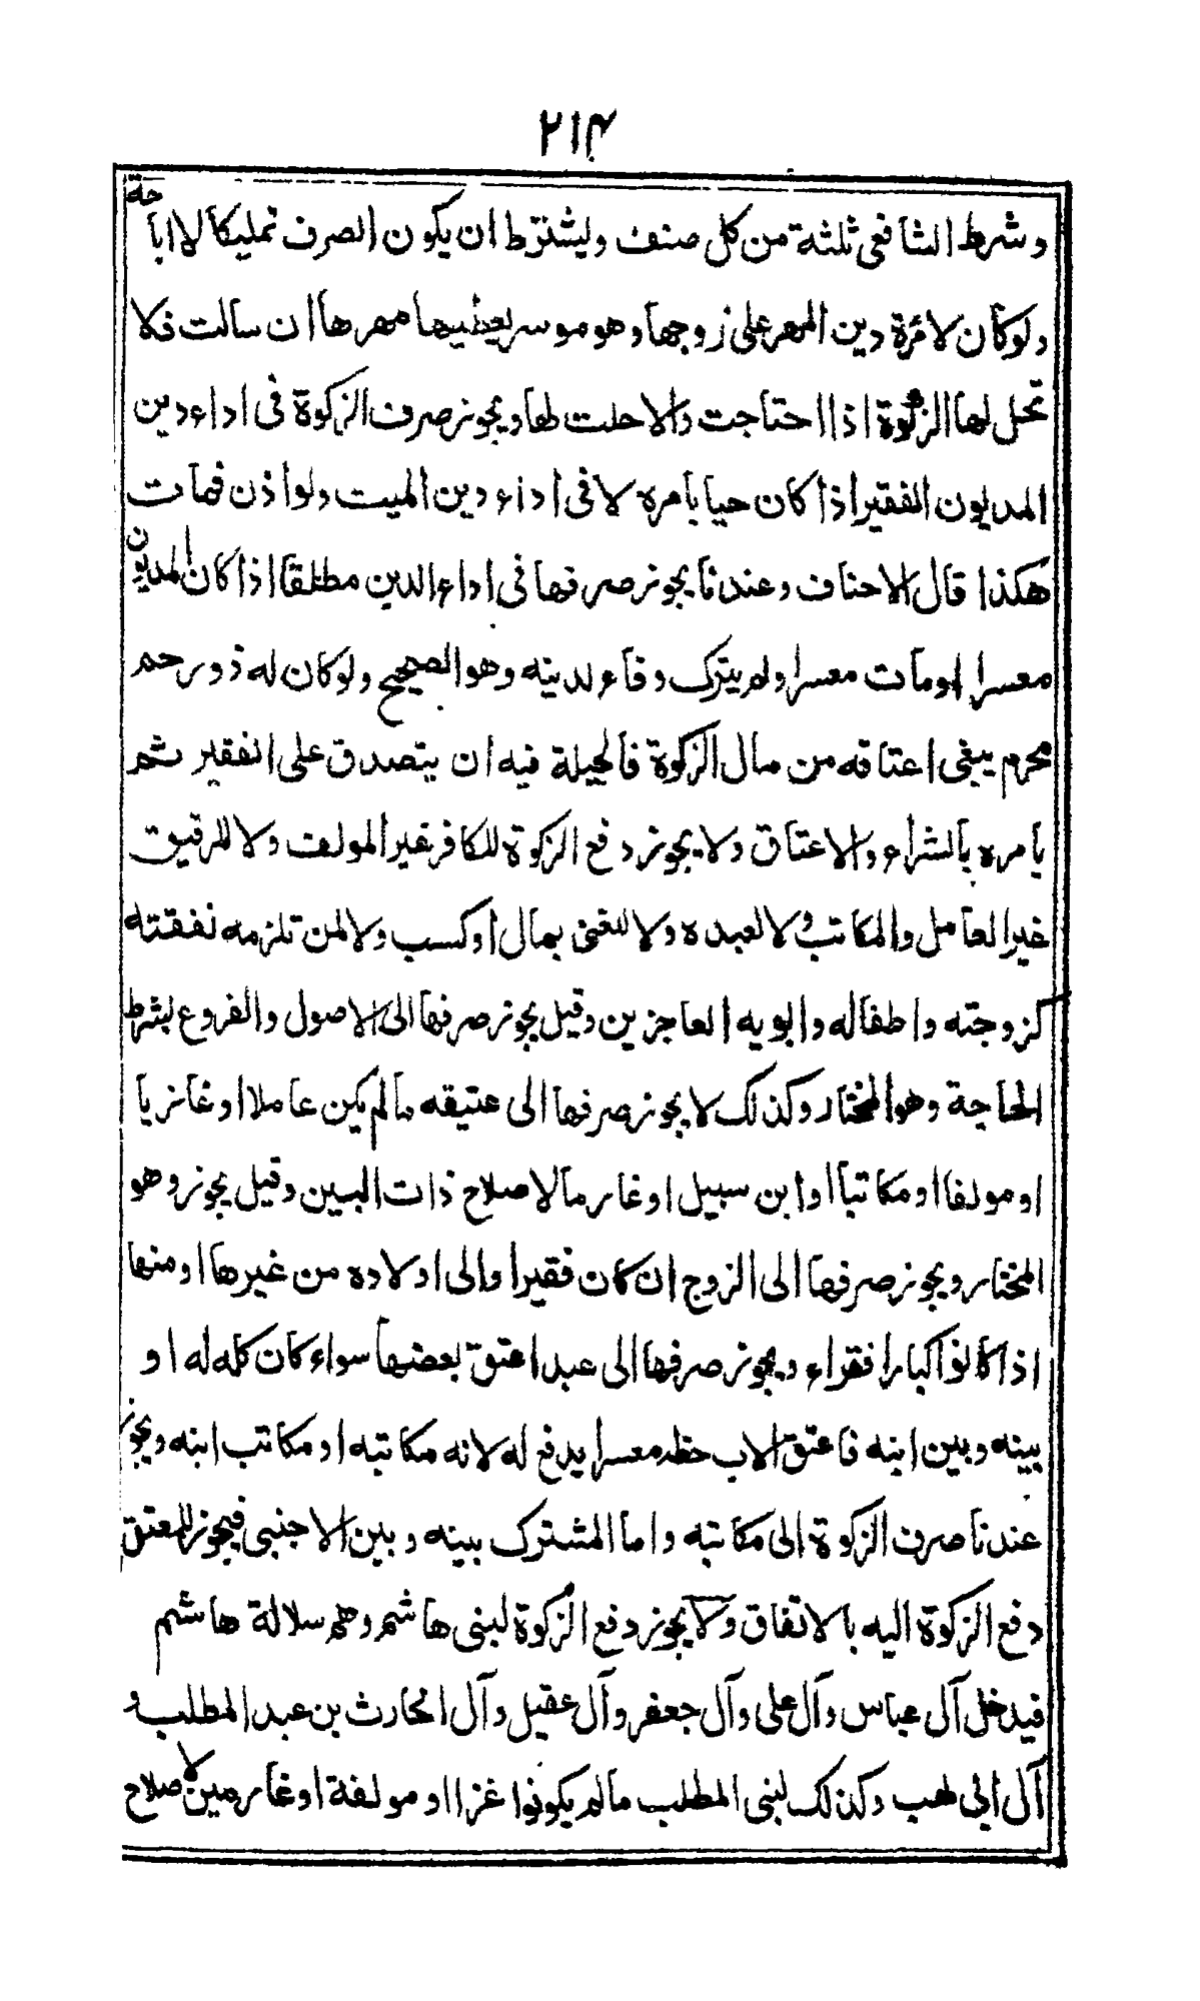 ٢١٤
وشرط الشافعي ثلثة من كل صنف وليشترط ان يكون الصرف تمليكا لا اباحة
ولو كان لامرءة دين المهر على زوجها وهو موسر يعطيها مهرها ان سالت فلا
تحل لها الزكوة اذا احتاجت والا حلت لها ويجوز صرف الزكوة في اداء دين
المديون الفقير اذا كان حيا بامره لا في اداء دين الميت ولو اذن فمات
هكذا قال الاحناف وعندنا يجوز صرفها في اداء الدين مطلقا اذا كان المديون
معسرا او مات معسرا ولم يترك وفاء لدينه وهو الصحيح ولو كان له ذو رحم
محرم يبغي اعتاقه من مال الزكوة فالحيلة فيه ان يتصدق على الفقير ثم
يامره بالشراء والاعتاق ولا يجوز دفع الزكوة للكافر غير المولف ولا للرقيق
غير العامل والمكاتب ولا لعبده ولا للغني بمال او كسب ولا لمن تلزمه نفقته
كزوجته واطفاله وابويه العاجزين وقيل يجوز صرفها الى الاصول والفروع بشرط
الحاجة وهو المختار وكذلك لا يجوز صرفها الى عتيقه ما لم يكن عاملا او غازيا
او مولفا او مكاتبا او ابن سبيل او غارما لاصلاح ذات البين وقيل يجوز وهو
المختار ويجوز صرفها الى الزوج ان كان فقيرا والى اولاده من غيرها او منها
اذا كانوا كبارا فقراء ويجوز صرفها الى عبد اعتق بعضها سواء كان كله له او
بينه وبين ابنه فاعتق الاب حظه معسرا يدفع له لانه مكاتبه او مكاتب ابنه ويجوز
عندنا صرف الزكوة الى مكاتبه واما المشترك بينه وبين الاجنبي فيجوز للمعتق
دفع الزكوة اليه بالاتفاق ولا يجوز دفع الزكوة لبني هاشم وهم سلالة هاشم
فيدخل آل عباس وآل علي وآل جعفر وآل عقيل وآل الحارث بن عبد المطلب و
آل ابي لهب وكذلك لبني المطلب ما لم يكونوا غزا او مولفة او غارمين لاصلاح